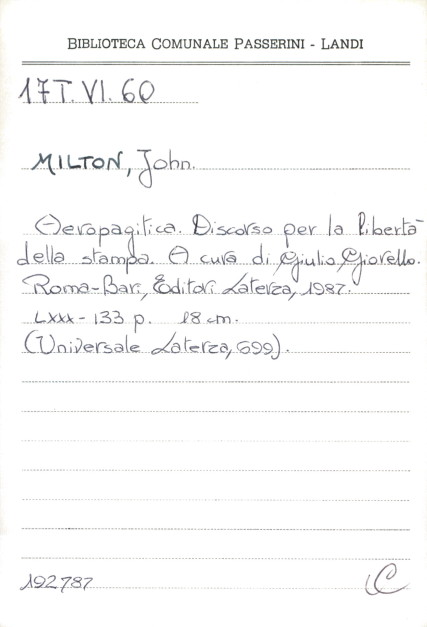 BIBLIOTECA COMUNALE PASSERINI - LANDI
17T.VI.60
MILTON, John.
Aeropagitica. Discorso per la libertà
della stampa. A cura di Giulio Giorello.
Roma-Bari, Editori Laterza, 1987.
LXXX-133 p. 18 cm.
(Universale Laterza, 699).
192787
C